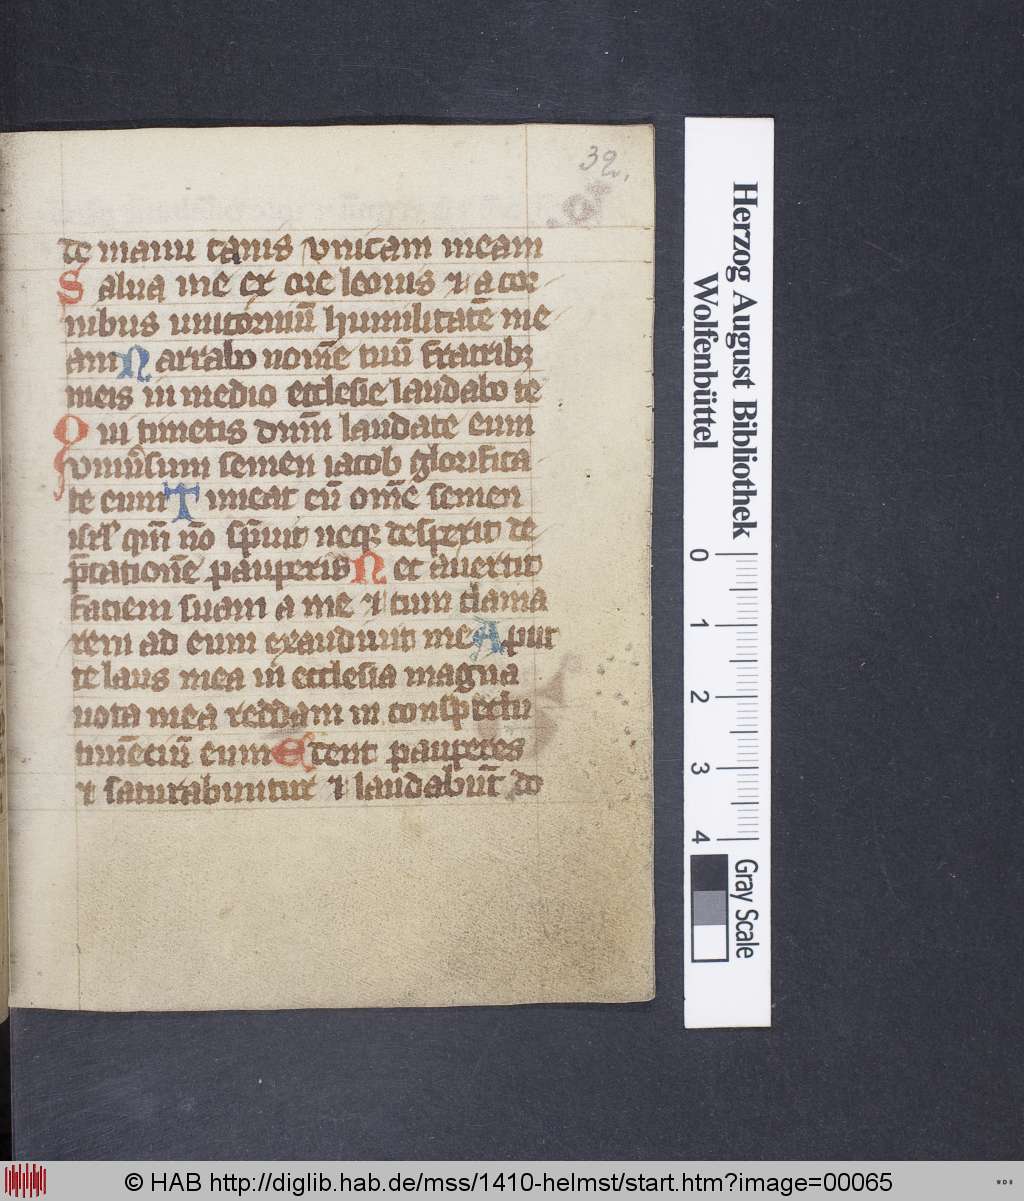 32.
de manu canis vnicam meam
Salua me ex ore leonis ⁊ a cor
nibus unicorniū humilitatē me
am Narrabo nom̄e tuū fratribꝫ
meis in medio ecclesie laudabo te
Qui timetis dn̄m laudate eum
vniu̾sum semen iacob glorifica
te eum Timeat eū om̄e semen
isrl̕ qm̄ nō sp̄uit neqꝫ despexit de
p̄cationē pauperis Nec auertit
faciem suam a me ⁊ cum clama
rem ad eum exaudiuit me Aput
te laus mea in ecclesia magna
uota mea reddam in conspectu
timēciū eum Edent pauperes
⁊ saturabuntur ⁊ laudabūt do
Herzog August Bibliothek
Wolfenbüttel
0
1
2
3
4
Gray Scale
© HAB http://diglib.hab.de/mss/1410-helmst/start.htm?image=00065